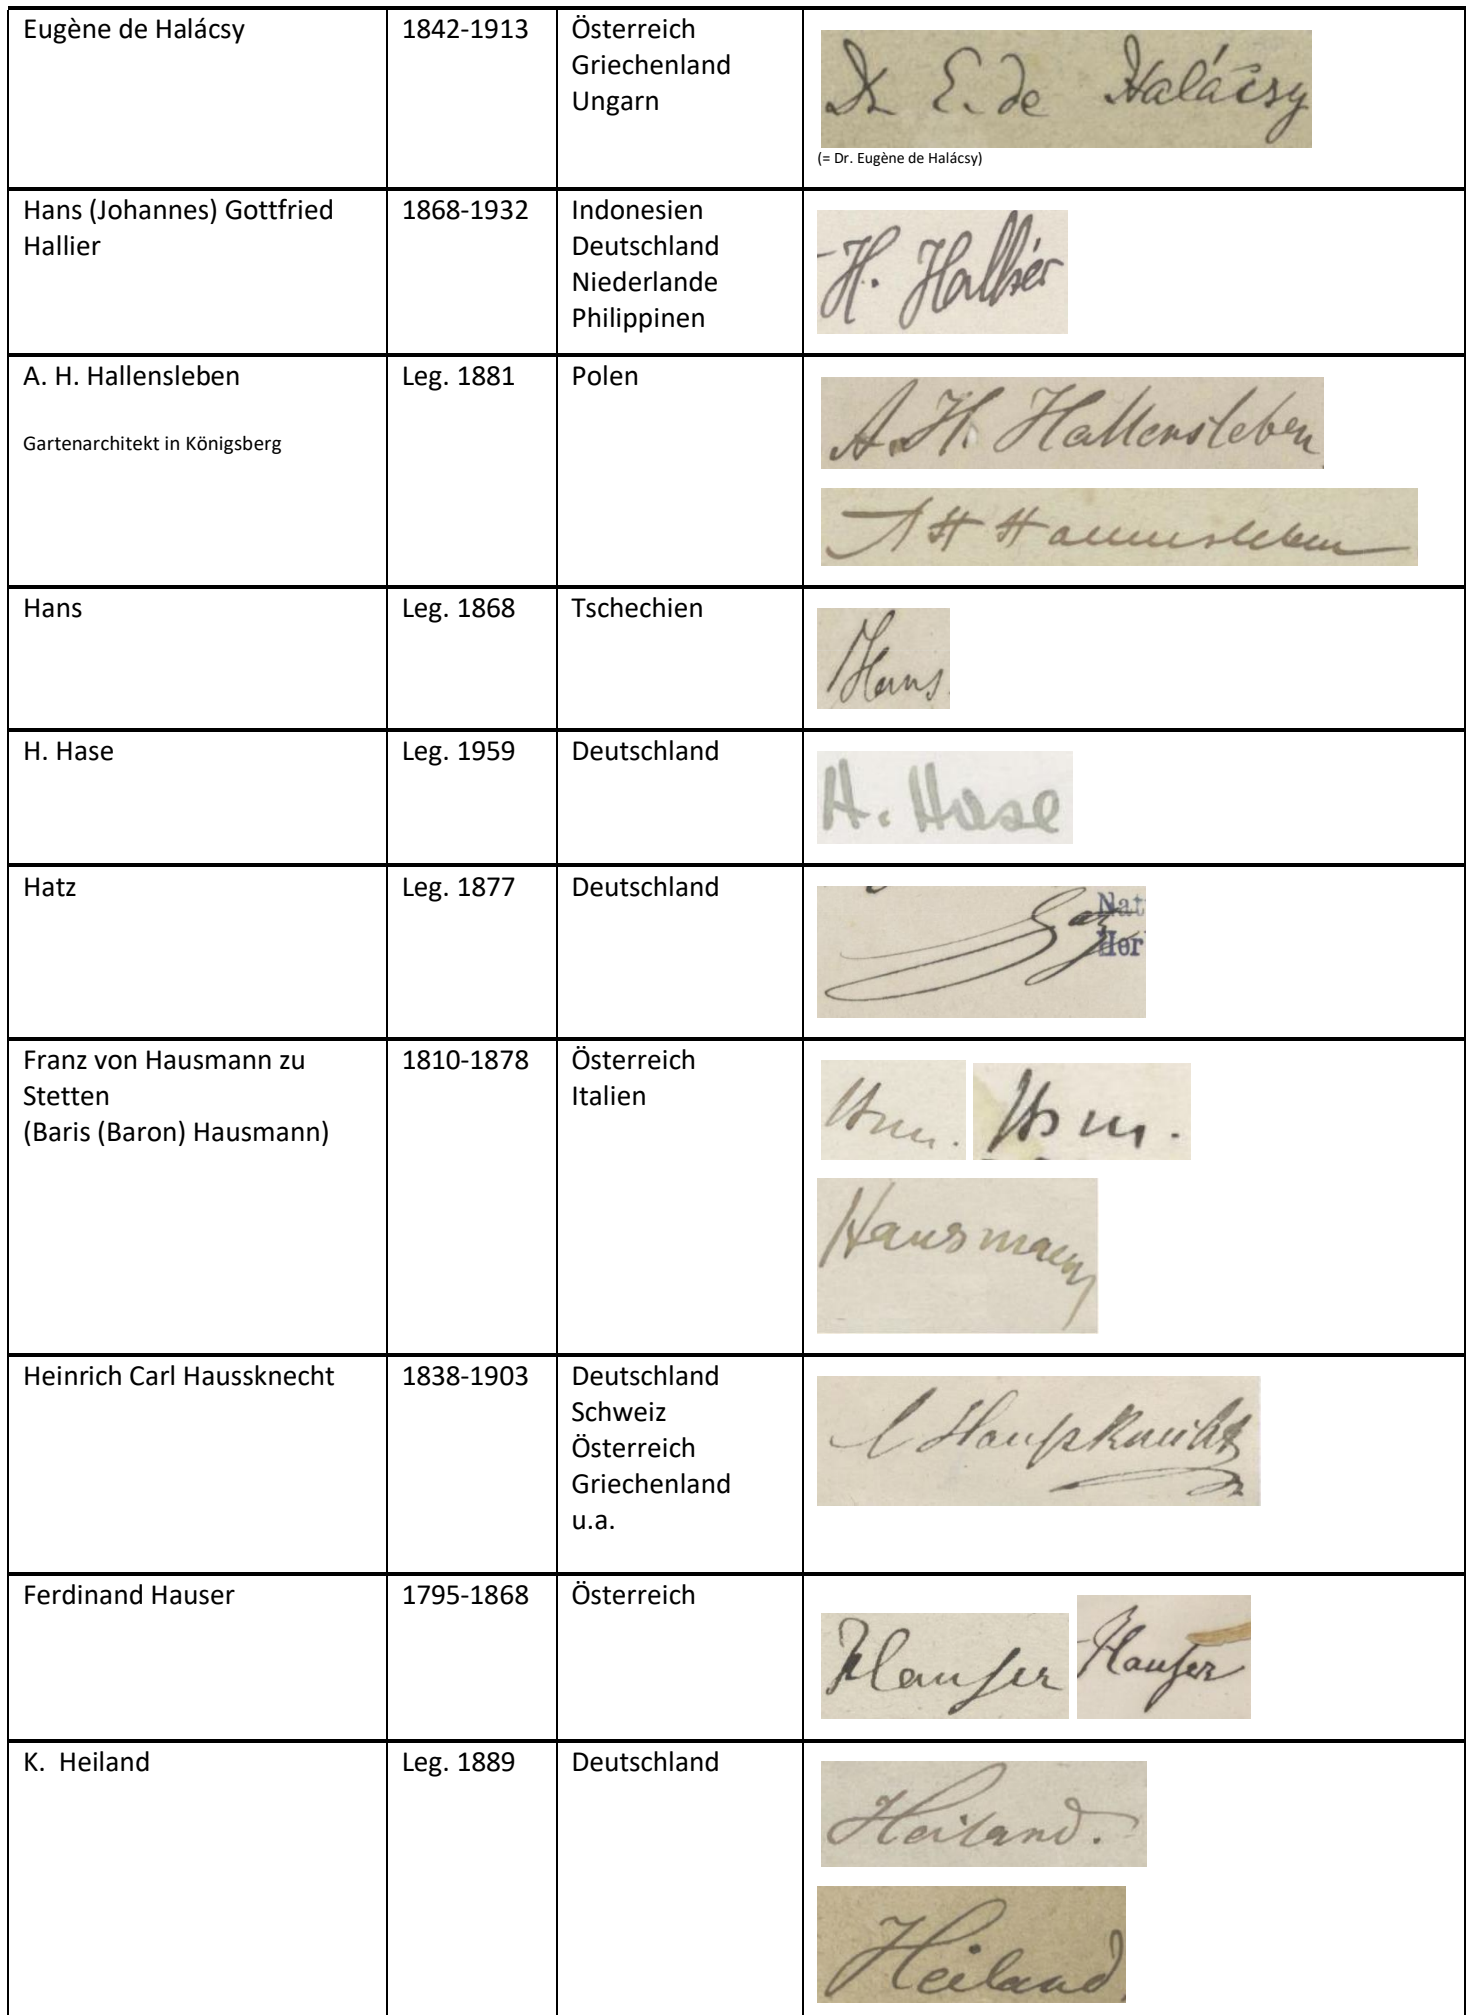 Eugène de Halácsy 1842-1913 Österreich
Griechenland
Ungarn
Dr. E. de Halácsy
(= Dr. Eugène de Halácsy)
Hans (Johannes) Gottfried 1868-1932 Indonesien
Hallier Deutschland
Niederlande
Philippinen
H. Hallier
A. H. Hallensleben Leg. 1881 Polen
Gartenarchitekt in Königsberg
A. H. Hallensleben
A H Hallensleben
Hans Leg. 1868 Tschechien
Hans
H. Hase Leg. 1959 Deutschland
H. Hase
Hatz Leg. 1877 Deutschland
Nat
Her
Franz von Hausmann zu 1810-1878 Österreich
Stetten Italien
(Baris (Baron) Hausmann)
Hsm. Hsm.
Hausmann
Heinrich Carl Haussknecht 1838-1903 Deutschland
Schweiz
Österreich
Griechenland
u.a.
C Haußknecht
Ferdinand Hauser 1795-1868 Österreich
Hauser Hauser
K. Heiland Leg. 1889 Deutschland
Heiland.
Heiland